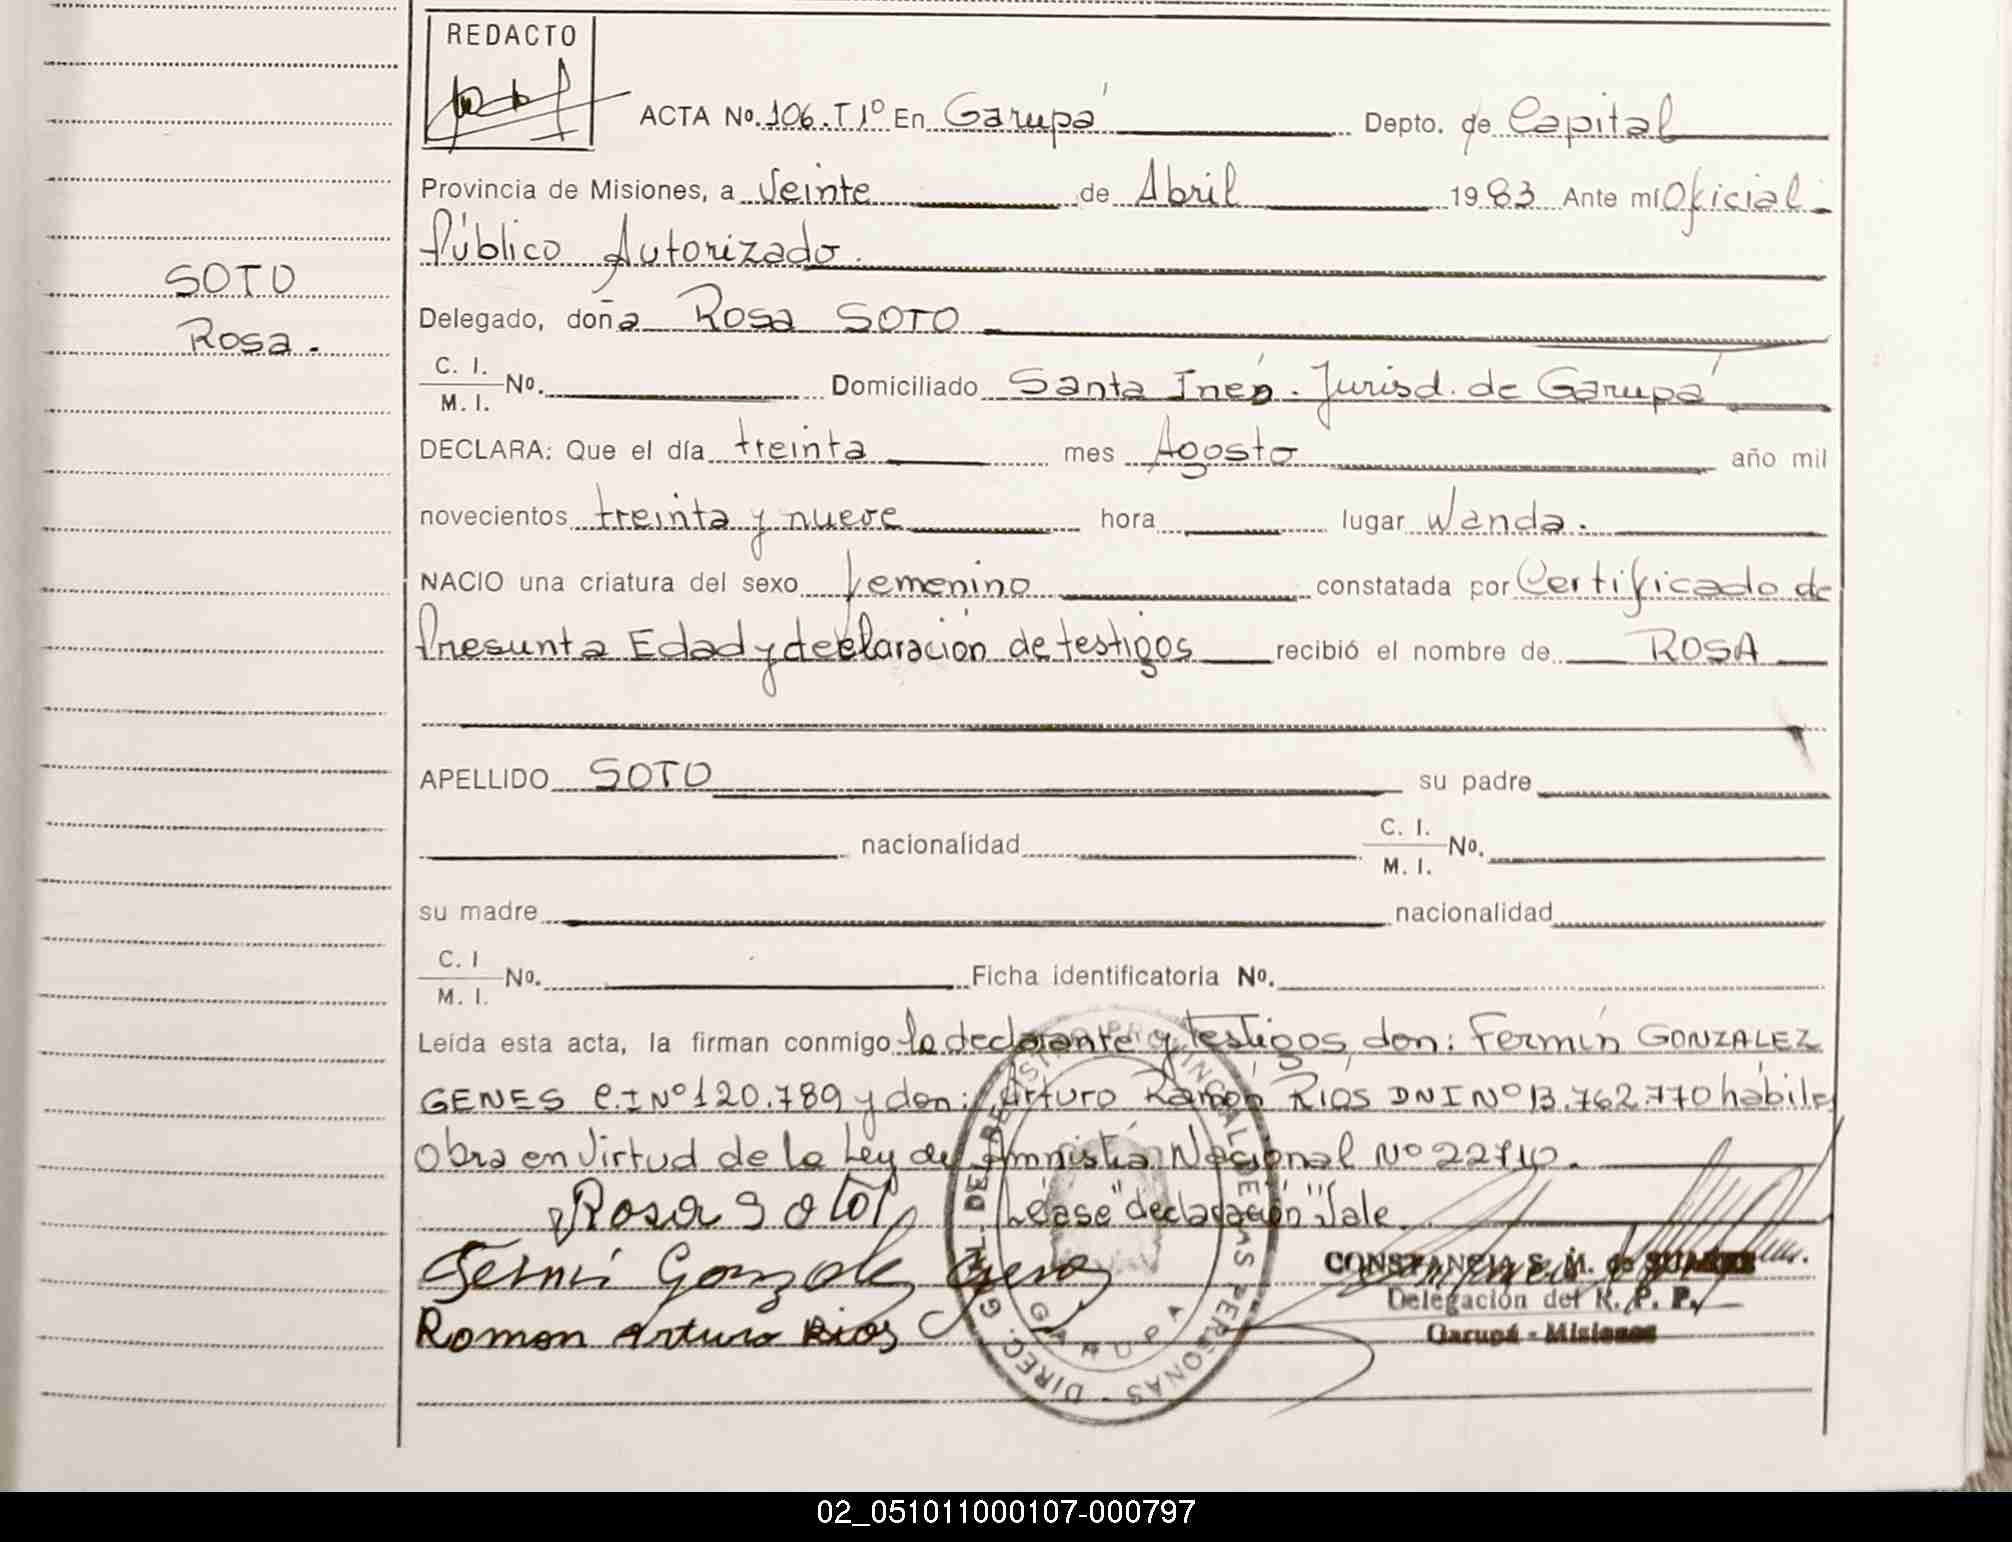 REDACTO
ACTA No. 106. T1º En Garupá Depto. de Capital
Provincia de Misiones, a Veinte de Abril 1983 Ante mí Oficial
Público Autorizado.
SOTO
Rosa.
Delegado, doña Rosa SOTO
C. I.
M. I. No. Domiciliado Santa Inés. Jurisd. de Garupá
DECLARA: Que el día treinta mes Agosto año mil
novecientos treinta y nueve hora lugar Wanda.
NACIO una criatura del sexo femenino constatada por Certificado de
Presunta Edad y declaración de testigos recibió el nombre de ROSA
APELLIDO SOTO su padre
nacionalidad C. I.
M. I. No.
su madre nacionalidad
C. I
M. I. No. Ficha identificatoria No.
Leída esta acta, la firman conmigo la declarante y testigos, don: Fermín GONZALEZ
GENES C.I Nº 120.789 y don: Arturo Ramón RIOS DNI Nº 13.762.770 hábiles
Obra en Virtud de la Ley de Amnistía Nacional Nº 22710.
Rosa Soto Léase "declaración" Vale.
Fermin Gonzalez Genes
Ramon Arturo Rios
CONSTANCIA S. M. de SUAREZ
Delegación del R. P. P.
Garupá - Misiones
DIREC. GRAL. DEL REGISTRO PROVINCIAL DE LAS PERSONAS
GARUPA
02_051011000107-000797